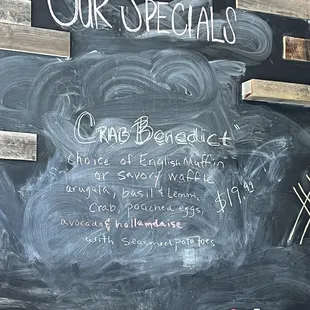 OUR SPECIALS
"CRAB Benedict"
Choice of English Muffin
or savory waffle
arugula, basil & Lemon,
Crab, poached eggs,
avocado & hollandaise
with seasoned potatoes
$19.99